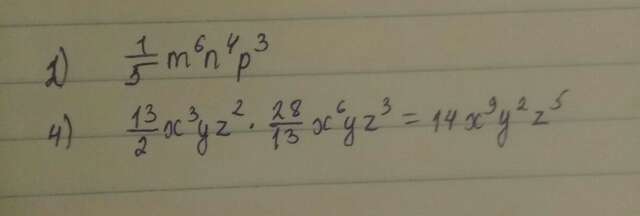 2) 1/5 m⁶n⁴p³
4) 13/2 x³yz² · 28/13 x⁶yz³ = 14x⁹y²z⁵